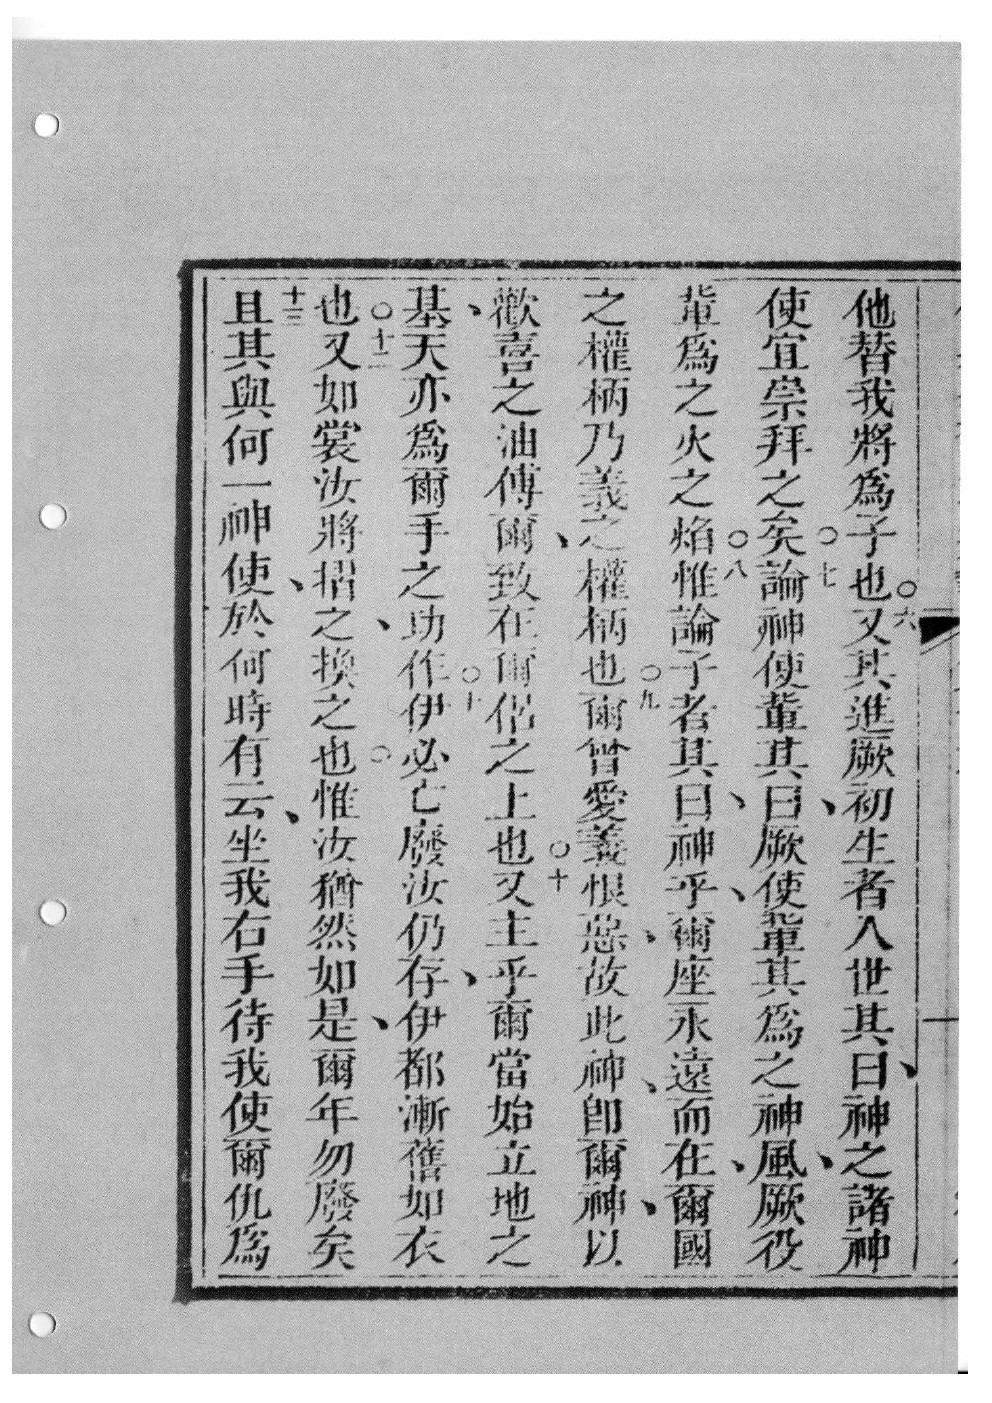 他替我將為子也○六又其進厥初生者入世其曰、神之諸神
使宜崇拜之矣○七論神使輩其曰、厥使輩其為之神風、厥役
輩為之火之焰○八惟論子者其曰、神乎、爾座永遠而在、爾國
之權柄乃義之權柄也○九爾曾愛義恨惡、故此神、即爾神、以
歡喜之油傅爾、致在爾侶之上也○十又主乎爾當始立地之
基、天亦為爾手之功作○十伊必亡廢汝仍存、伊都漸舊如衣
也○十二又如裳汝將摺之、換之也○惟汝猶然如是、爾年勿廢矣
十三且其與何一神使、於何時有云、坐我右手待我使爾仇為